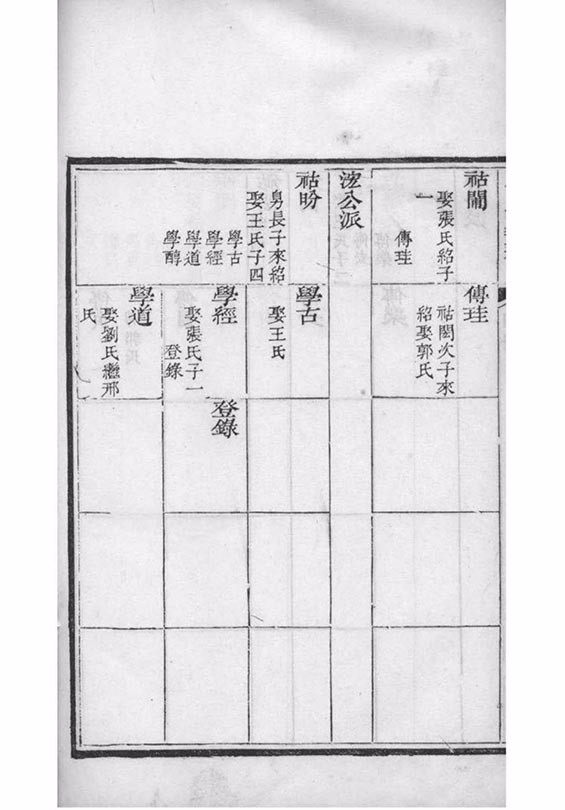 祜閙
娶張氏紹子
一
傳珪
傳珪
祜閎次子來
紹娶郭氏
浤公派
祜盼
㫒長子來紹
娶王氏子四
學古
學經
學道
學醇
學古
娶王氏
學經
娶張氏子一
登錄
登錄
學道
娶劉氏繼邢
氏